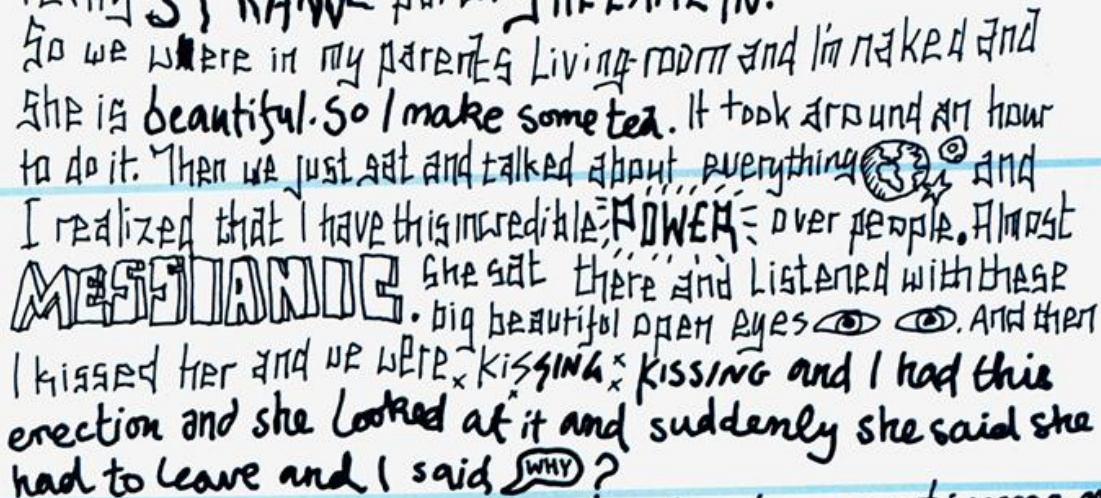 STRANGE
So we where in my parents Living-room and I'm naked and
she is beautiful. So I make some tea. It took around an hour
to do it. Then we just sat and talked about everything and
I realized that I have this incredible POWER over people. Almost
MESSIANIC. She sat there and Listened with these
big beautiful open eyes. And then
I kissed her and we were kissing kissing and I had this
erection and she Looked at it and suddenly she said she
had to Leave and I said WHY?